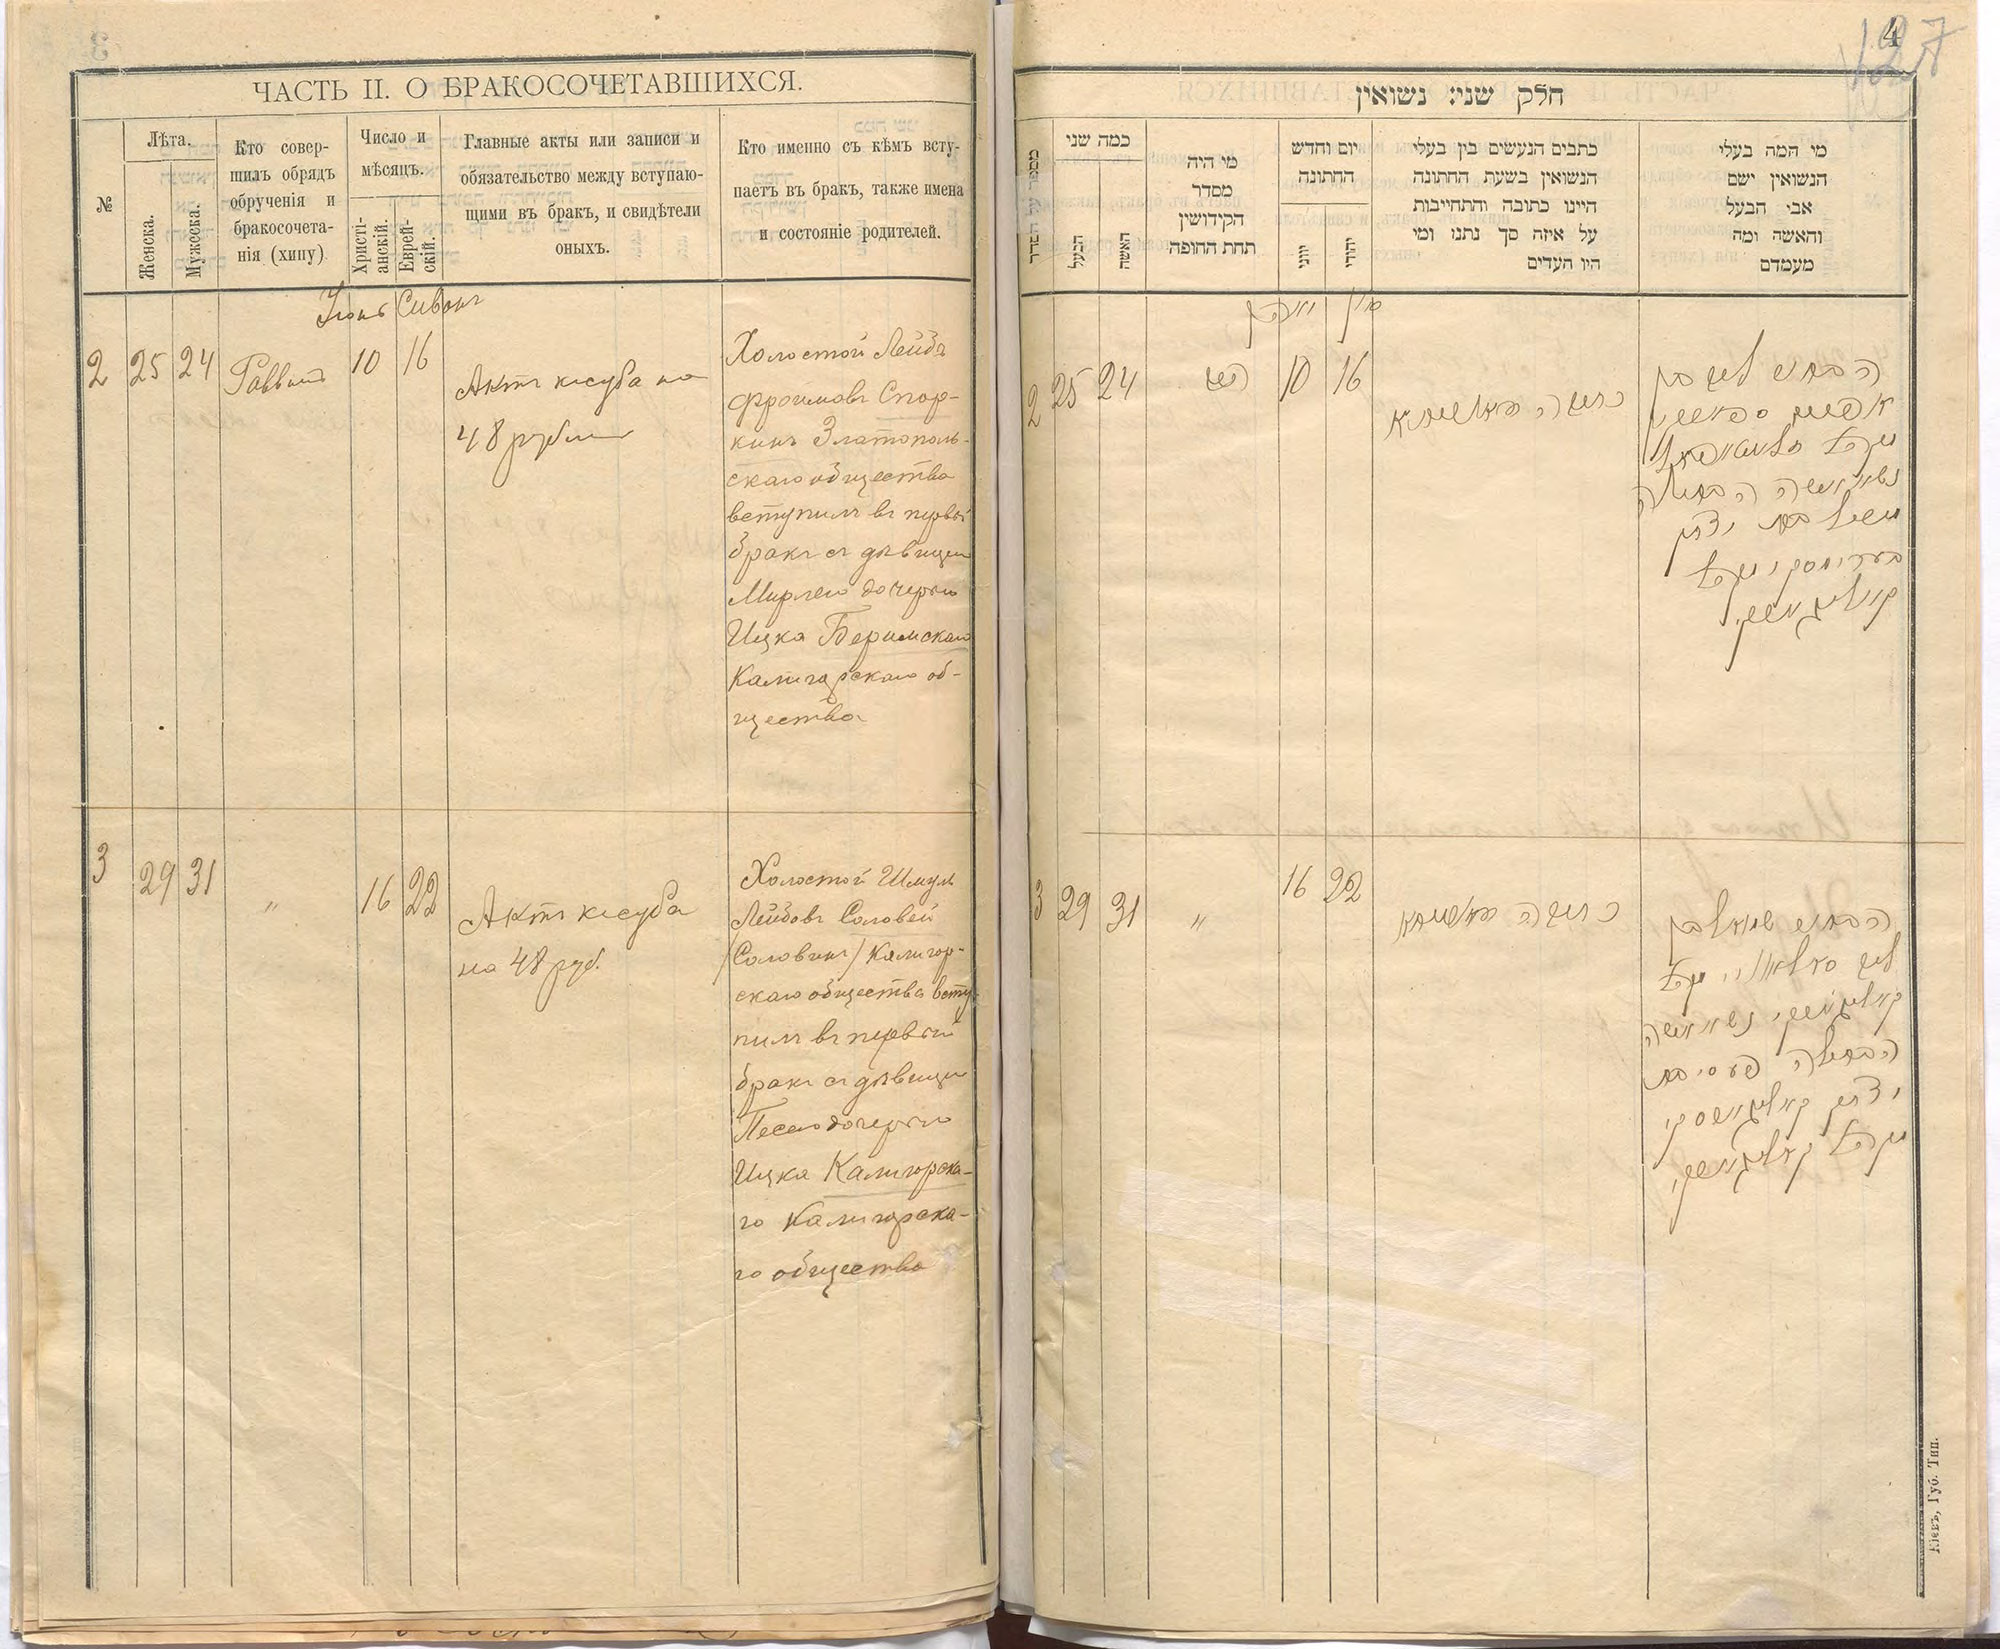 ЧАСТЬ II. О БРАКОСОЧЕТАВШИХСЯ.
№
Лѣта.
Женска.
Мужеска.
Кто совер-
шилъ обрядъ
обрученія и
бракосочета-
нія (хипу)
Число и
мѣсяцъ.
Христі-
анскій.
Еврей-
скій.
Главные акты или записи и
обязательство между вступаю-
щими въ бракъ, и свидѣтели
оныхъ.
Кто именно съ кѣмъ всту-
паетъ въ бракъ, также имена
и состояніе родителей.
Іюнь Сивонъ
2 25 24 Раввинъ 10 16
Актъ кесуба на
48 рублей
Холостой Лейбъ
Фроимовъ Спор-
кинъ Златополь-
скаго общества
вступилъ въ первый
бракъ съ дѣвицею
Мирлею дочерью
Ицка Беримскаго
Калигорскаго об-
щества
3 29 31 " 16 22
Актъ кесуба
на 48 руб.
Холостой Шмуль
Лейбовъ Соловей
/Соловинъ/ Калигор-
скаго общества всту-
пилъ въ первый
бракъ съ дѣвицею
Песею дочерью
Ицка Калигорска-
го Калигорска-
го общества
4
127
חלק שני: נשואין
מספר על הסדר
כמה שני
הבעל
האשה
מי היה
מסדר
הקידושין
תחת החופה
יום וחדש
החתונה
יווני
יהודי
כתבים הנעשים בין בעלי
הנשואין בשעת החתונה
היינו כתובה והתחייבות
על איזה סך נתנו ומי
היו העדים
מי המה בעלי
הנשואין ושם
אבי הבעל
והאשה ומה
מעמדם
2 25 24 10 16
הבחור לייב בן
נשא אשה הבתולה
בת יצחק
3 29 31 " 16 22
הבחור שמואל בן
לייב
נשא אשה
הבתולה פעסי בת
יצחק קאליגארסקי
Кіевъ, Губ. Тип.